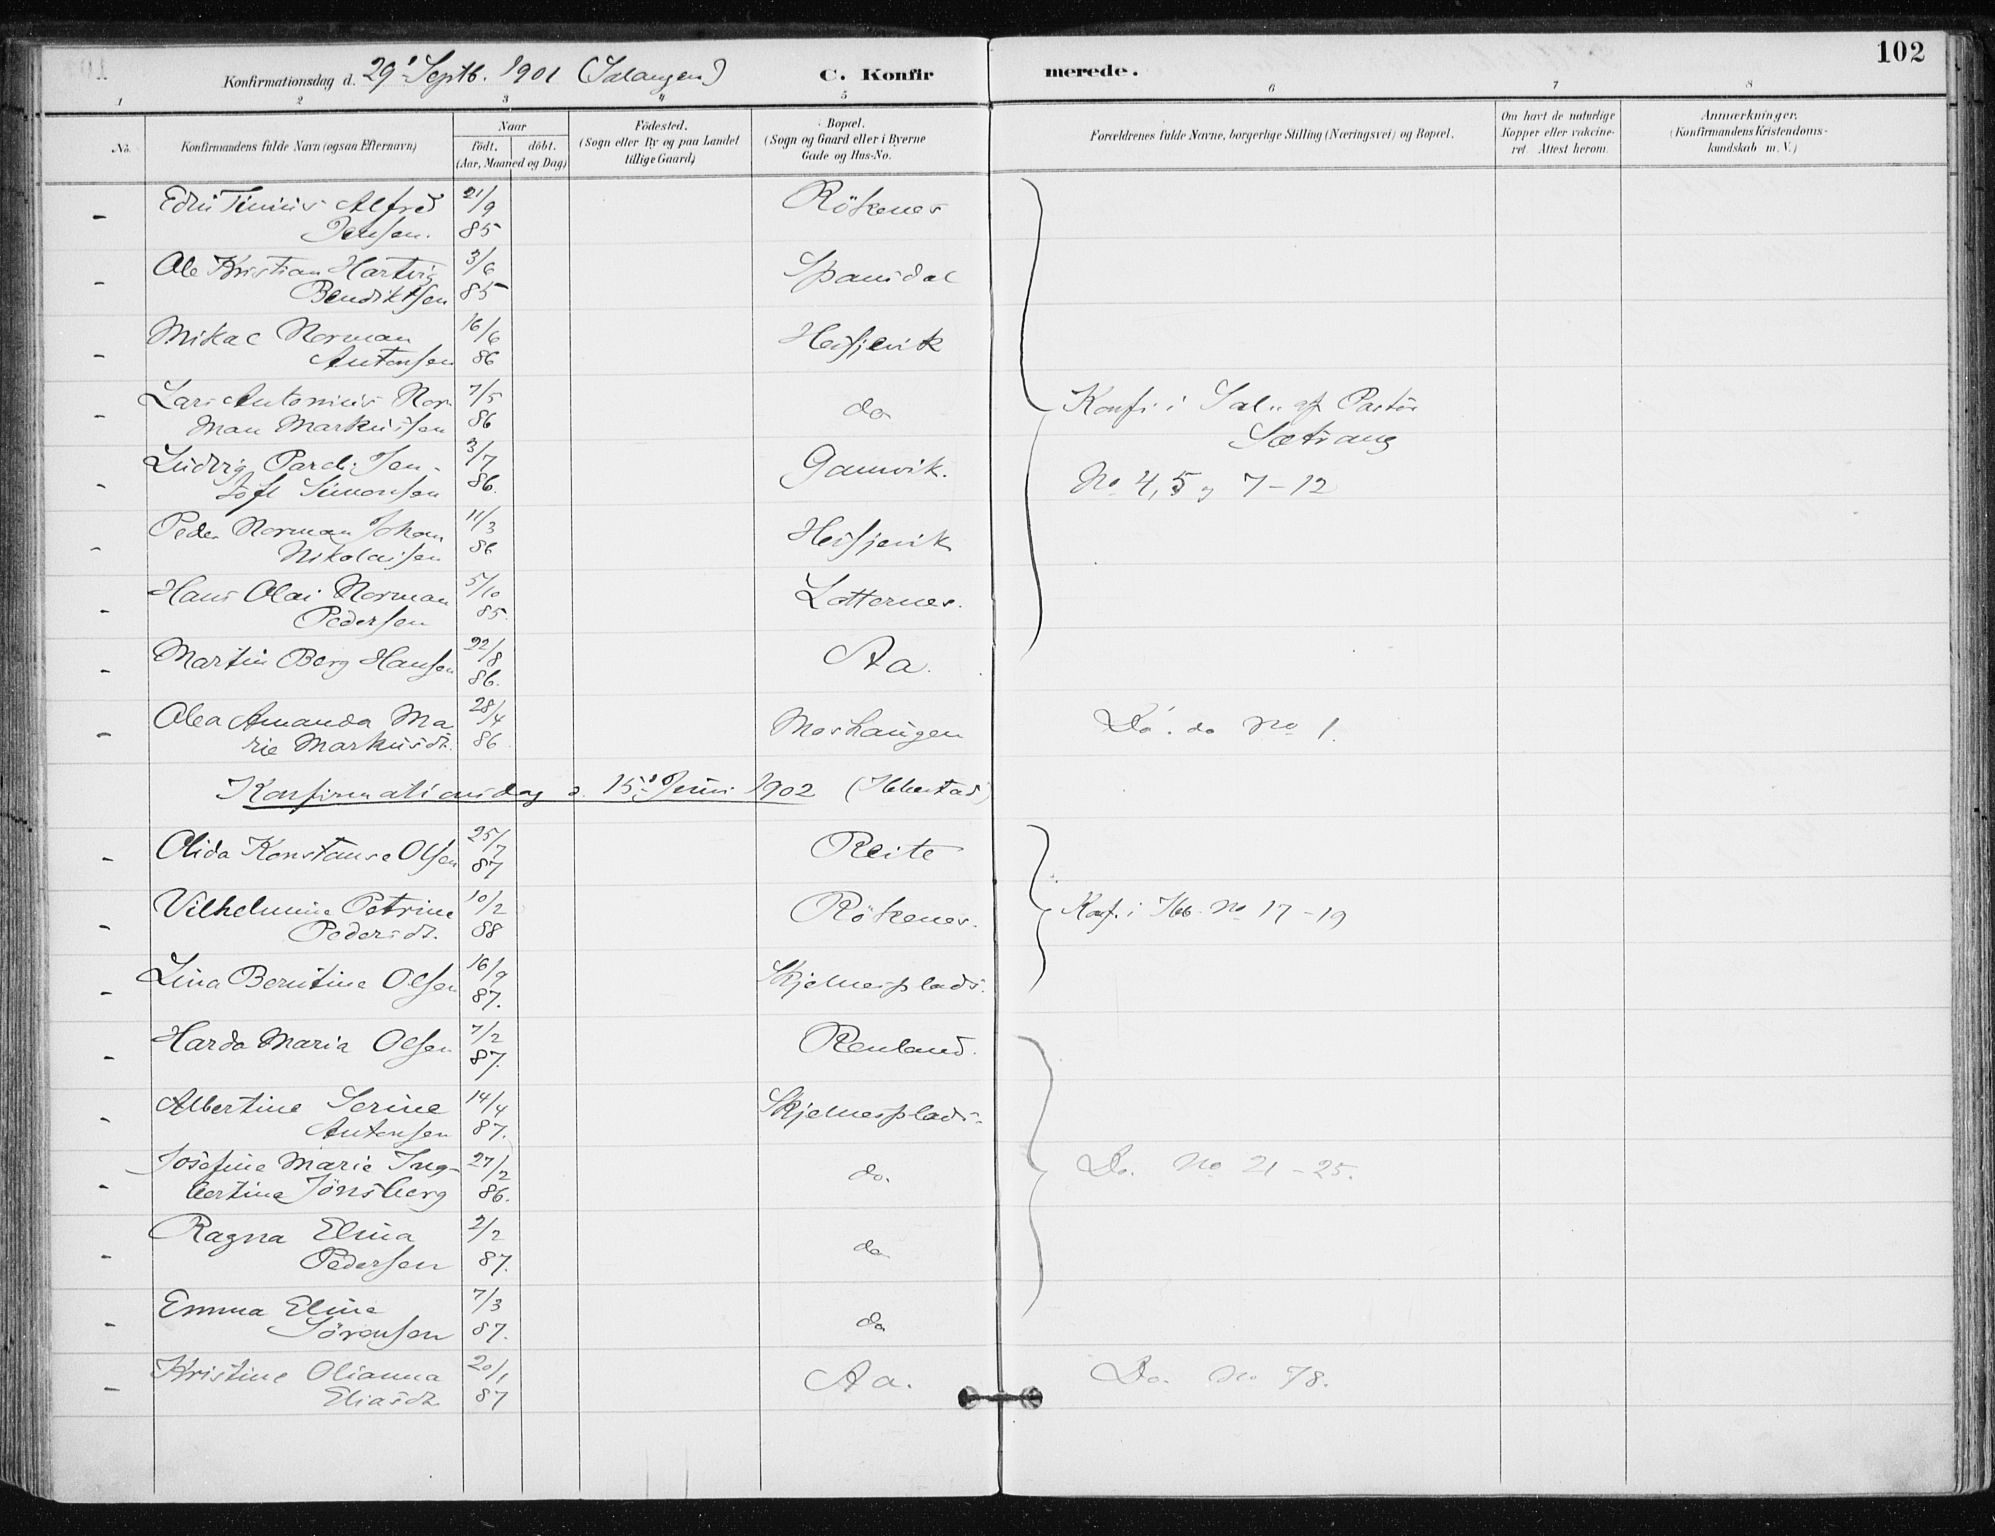 102
Konfirmationsdag d. 29' Septb. 1901 (Salangen)
C. Konfirmerede.
1 2 3 4 5 6 7 8
No.
Konfirmandens fulde Navn (ogsaa Efternavn)
Naar
födt. döbt.
(Aar, Maaned og Dag)
Födested.
(Sogn eller By og paa Landet
tillige Gaard)
Bopæl.
(Sogn og Gaard eller i Byerne
Gade og Hus-No.
Forældrenes fulde Navne, borgerlige Stilling (Næringsvei) og Bopæl.
Om havt de naturlige
Kopper eller vakcine-
ret. Attest herom.
Anmærkninger.
(Konfirmandens Kristendoms-
kundskab m. V.)
- Alfred 21/9 Rökenes
Jensen. 85
- Ole Kristian Hartvig 3/6 Spansdal
Bendiktsen 85
- Mikal Norman 16/6
Antonsen 86
- Lars Antonius Nor- 7/5 do Konf. i Sal. af Pastor
man Markussen 86 Sætrang
- Ludvig Parel. Jen- 3/7 Gamvik. No 4, 5 og 7-12
toft Simonsen 86.
- Peder Norman Johan 11/3
Nikolaisen 86
- Hans Olai Norman 5/10 Lotternes.
Pedersen 85.
- Martin Berg Hansen 22/8 Aa.
86.
- Olea Amanda Ma 28/4 Moshaugen Do. do No 1.
rie Markusdt. 86
Konfirmationsdag d. 15' Juni 1902 (Ibbestad)
- Olida Konstanse Olsen 25/7 Reite
87
- Vilhelmine Petrine 10/2 Rökenes. Konf. i Ibb. No 17-19
Pedersdt. 88
- Lina Berntine Olsen 16/9 Skjelnesplads.
87.
- Harda Maria Olsen 7/2 Renland.
87.
- Albertine Serine 14/4 Skjelnesplads.
Antonsen 87.
- Josefine Marie Ing- 27/2 do. Do. No 21-25.
bertine Jönsberg 86.
- Ragna Elina 2/2 do
Pedersen 87.
- Emma Eline 7/3 do
Sörensen 87.
- Kristine Olianna 20/1 Aa. Do. No 78.
Eliasdt. 87